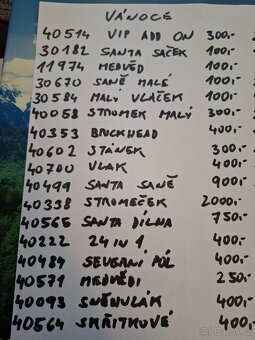 VÁNOCE
40514 VIP ADD ON 300,-
30182 SANTA SAČEK 100,-
11974 MEDVĚD 100,-
30670 SANĚ MALÉ 100,-
30584 MALÝ VLÁČEK 100,-
40058 STROMEK MALÝ 300,-
40353 BRICKHEAD 400,-
40602 STÁNEK 300,-
40700 VLAK 400,-
40499 SANTA SANĚ 900,-
40338 STROMEČEK 2000,-
40565 SANTA DÍLNA 750,-
40222 24 IN 1 400,-
40484 SEVERNÍ PÓL 400,-
40571 MEDVĚDI 250,-
40093 SNĚHULÁK 400,-
40564 SKŘÍTKOVÉ 400,-